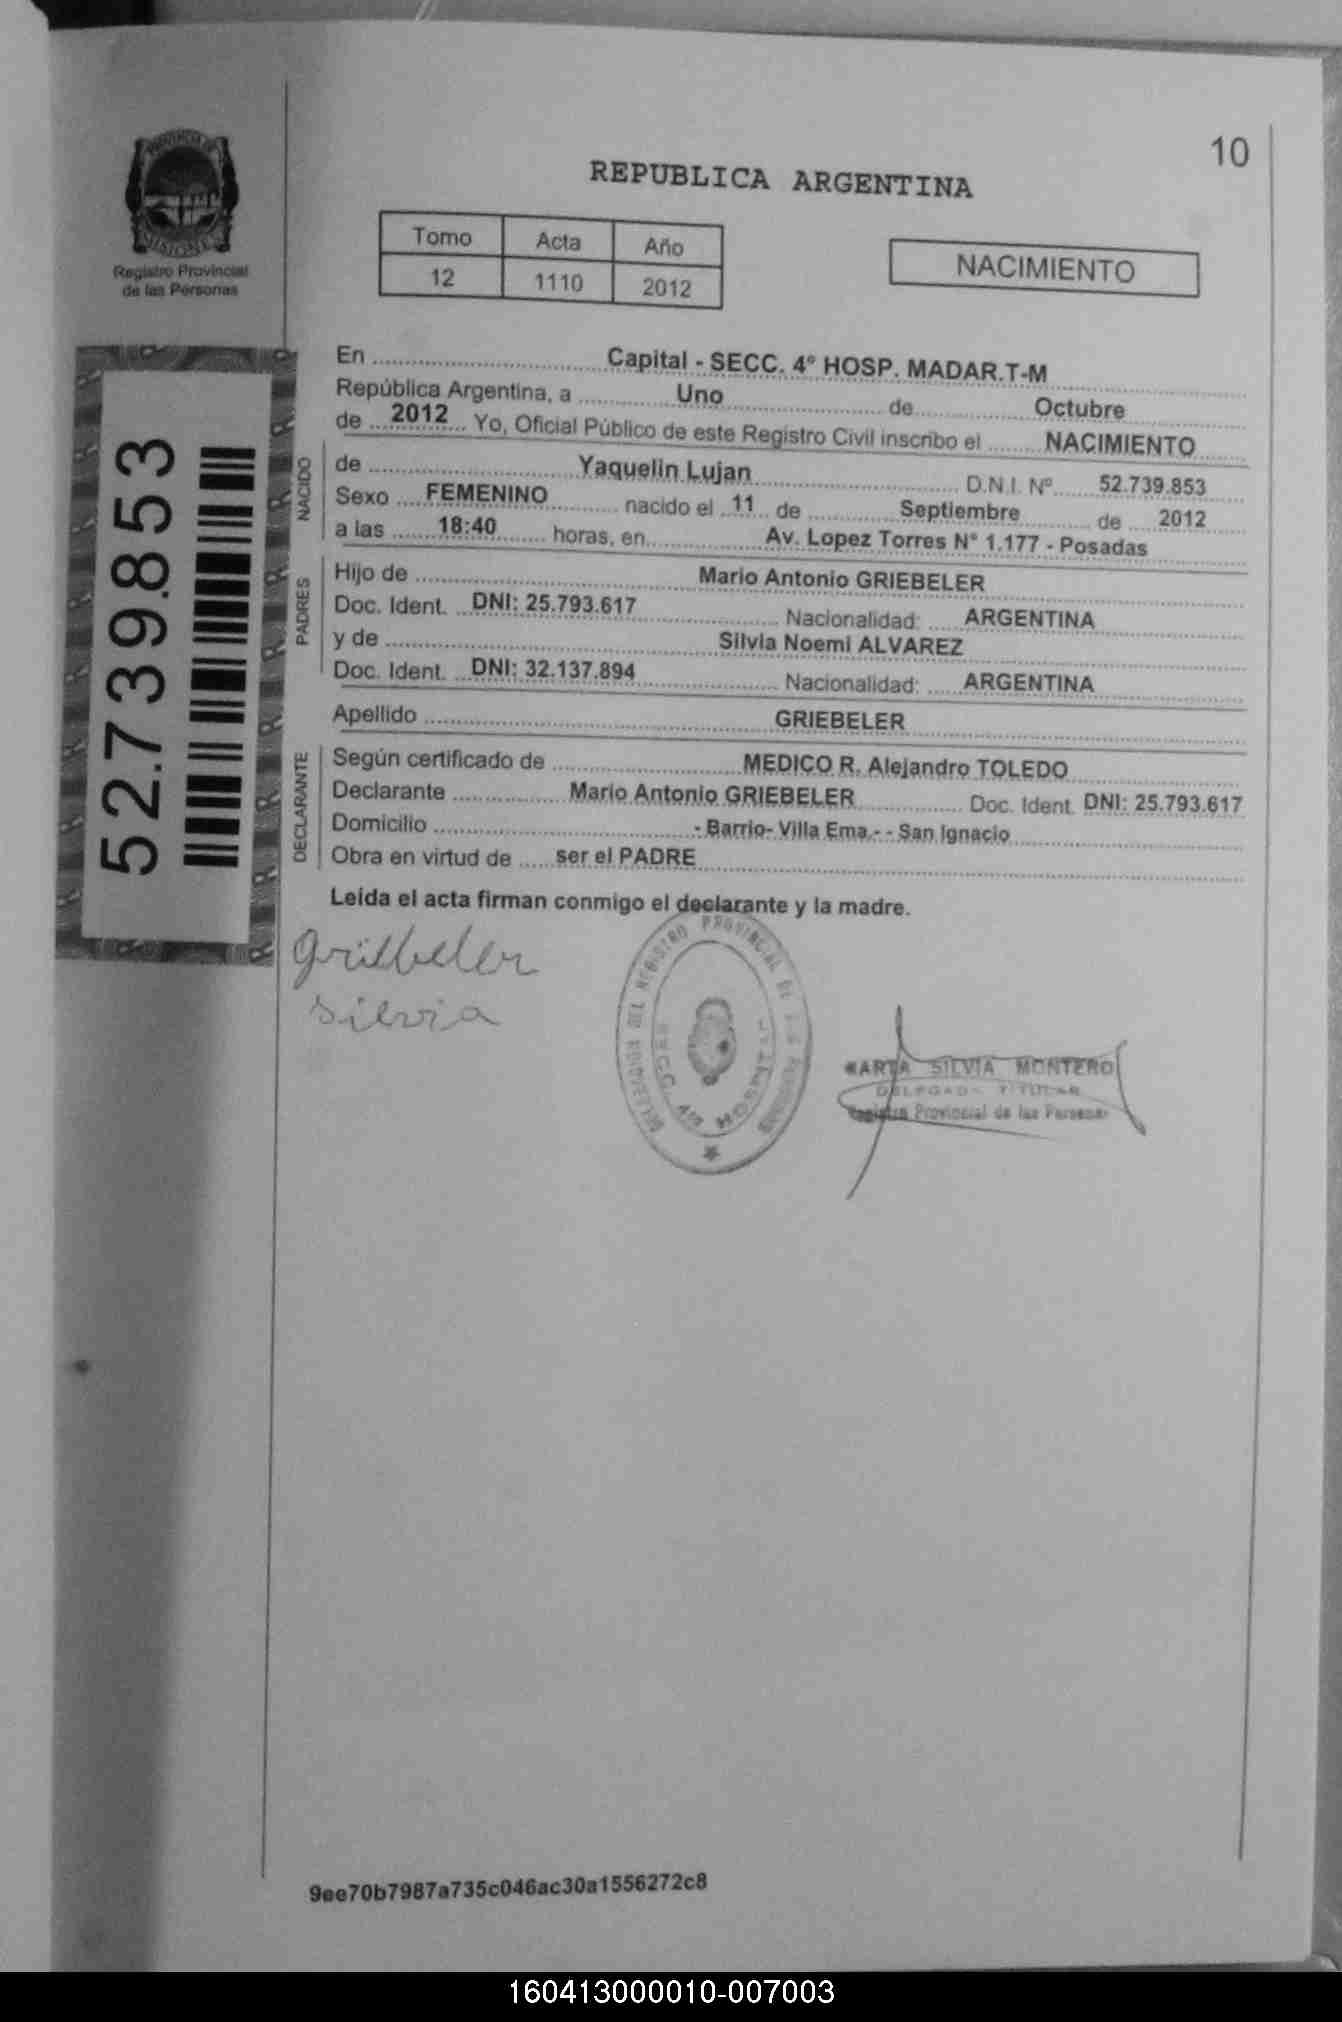 10
PROVINCIA DE
MISIONES
Registro Provincial
de las Personas
REPUBLICA ARGENTINA
Tomo Acta Año
12 1110 2012
NACIMIENTO
52.739.853
En Capital - SECC. 4º HOSP. MADAR.T-M
República Argentina, a Uno de Octubre
de 2012 Yo, Oficial Público de este Registro Civil inscribo el NACIMIENTO
NACIDO
de Yaquelin Lujan D.N.I. Nº 52.739.853
Sexo FEMENINO nacido el 11 de Septiembre de 2012
a las 18:40 horas, en Av. Lopez Torres N° 1.177 - Posadas
PADRES
Hijo de Mario Antonio GRIEBELER
Doc. Ident. DNI: 25.793.617 Nacionalidad: ARGENTINA
y de Silvia Noemi ALVAREZ
Doc. Ident. DNI: 32.137.894 Nacionalidad: ARGENTINA
Apellido GRIEBELER
DECLARANTE
Según certificado de MEDICO R. Alejandro TOLEDO
Declarante Mario Antonio GRIEBELER Doc. Ident. DNI: 25.793.617
Domicilio - Barrio- Villa Ema - - San Ignacio
Obra en virtud de ser el PADRE
Leida el acta firman conmigo el declarante y la madre.
Griebeler
Silvia
DELEGACION DEL REGISTRO PROVINCIAL DE LAS PERSONAS
SECC. 4ta HOSPITAL
MARTA SILVIA MONTERO
DELEGADA TITULAR
Registro Provincial de las Personas
9ee70b7987a735c046ac30a1556272c8
160413000010-007003